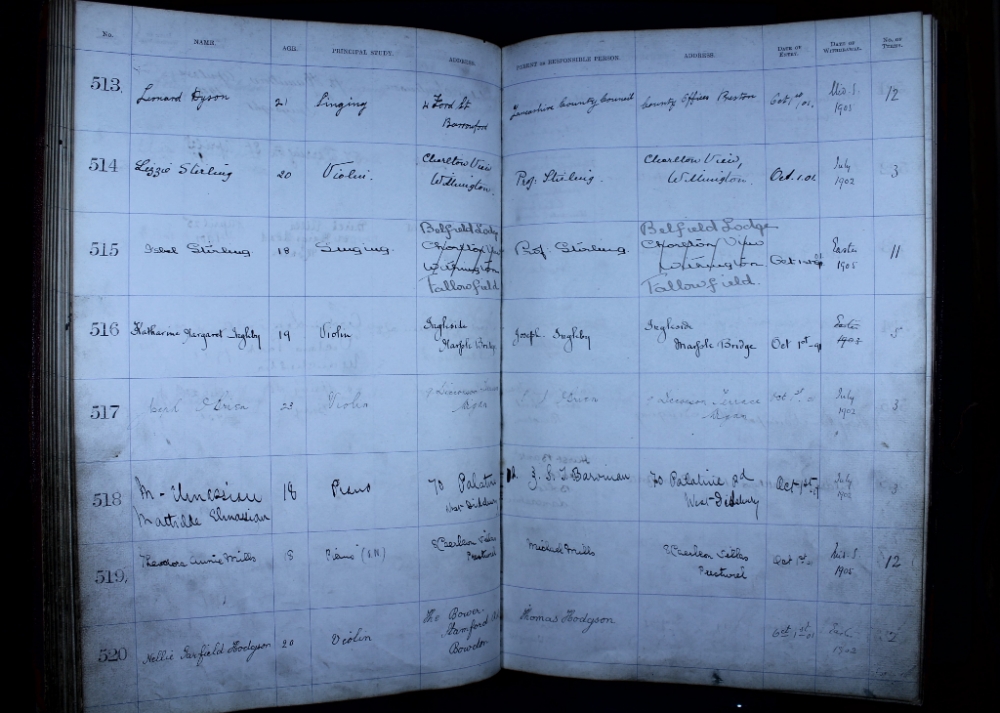 No. NAME. AGE. PRINCIPAL STUDY. ADDRESS. PARENT OR RESPONSIBLE PERSON. ADDRESS. DATE OF ENTRY. DATE OF WITHDRAWAL. No. OF TERMS.
513. Leonard Dyson 21 Singing 4 Ford St Lancashire County Council County Offices Preston Oct 1st 01. Mid. S. 12
Barrowford 1905
514 Lizzie Stirling 20 Violin. Charlton View Prof. Stirling. Charlton View, Oct. 1. 01 July 3
Withington. Withington. 1902
515 Isabel Stirling 18 Singing. Belfield Lodge Prof. Stirling. Belfield Lodge Oct 1st Easter 11
Charlton View Charlton View 1905
Withington Withington
Fallowfield Fallowfield.
516 Katharine Margaret Ingleby 19 Violin Ingleside Joseph Ingleby Ingleside Oct 1st Easter 5
Marple Bridge Marple Bridge 1903
517 O'Brien 23 Violin O'Brien Terrace Oct 1. 01 July 3
1902
518 M- Elmassian 18 Piano 70 Palatine Rd 70 Palatine Rd Oct 1st July 3
Mathilde Elmassian West Didsbury West Didsbury 1902
519. Theodora Annie Mills 18 Michael Mills Oct 1st Mid. S. 12
Prestwich Prestwich 1905
520 Nellie Garfield Hodgson 20 Violin The Bower Thomas Hodgson Oct 1st 01
Stamford Rd
Bowdon